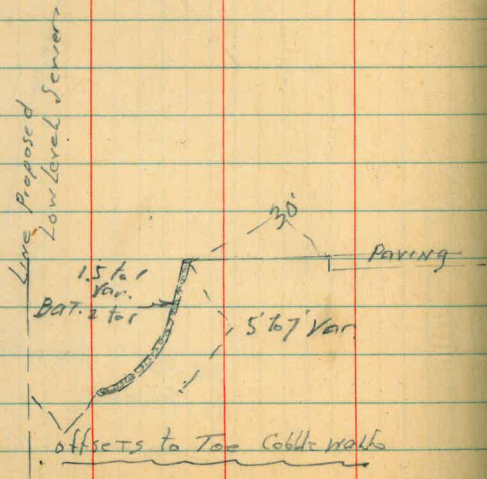 Line Proposed
Low Level Sewer
30'
Paving
1.5 to 1
Var.
Bat. 2 to 1
5' to 7' Var.
offsets to Toe Cobble walls